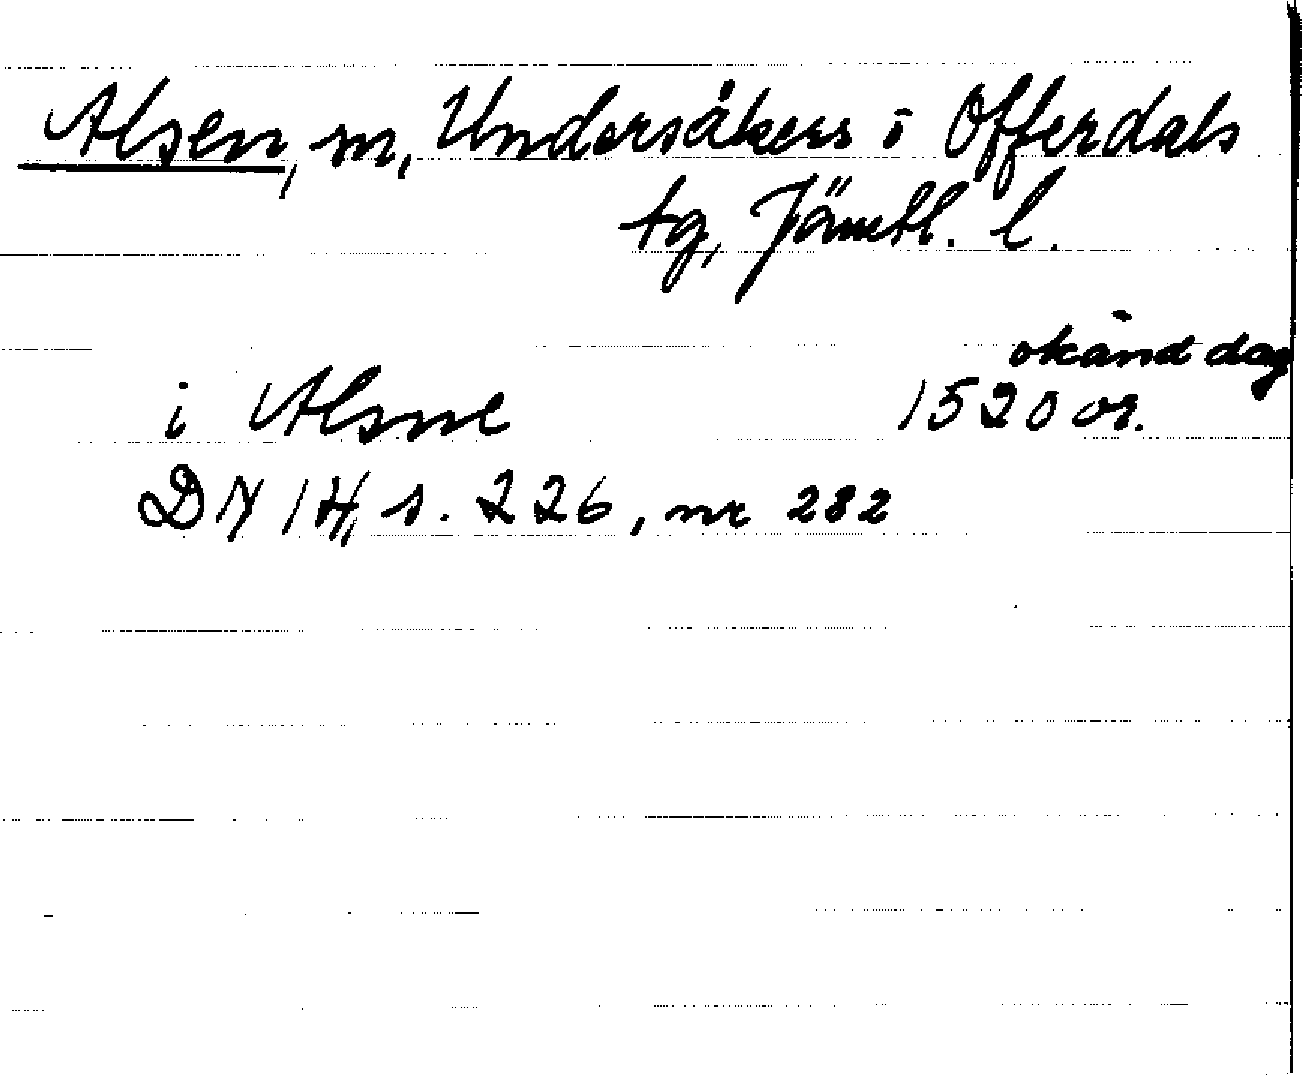 Alsen, m, Undersåkers i Offerdals
tg, Jämtl. l.
okänd dag
i Alsne 1520 or.
DN 14, s. 226, nr 282